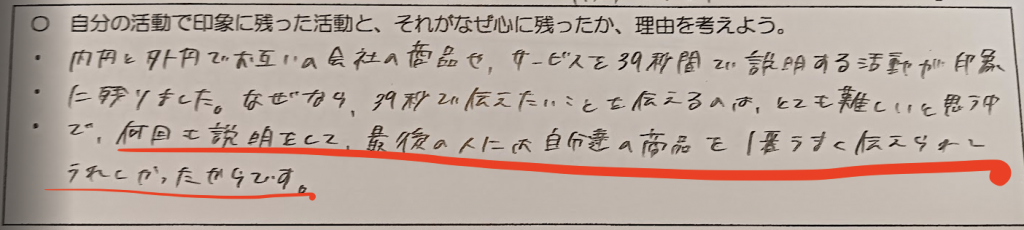 ○ 自分の活動で印象に残った活動と、それがなぜ心に残ったか、理由を考えよう。
・ 内円と外円でお互いの会社の商品や、サービスを39秒間で説明する活動が印象
・ に残りました。なぜなら、39秒で伝えたいことを伝えるのは、とても難しいと思う中
・ で、何回も説明をして、最後の人には自分達の商品を1番うまく伝えられて
うれしかったからです。